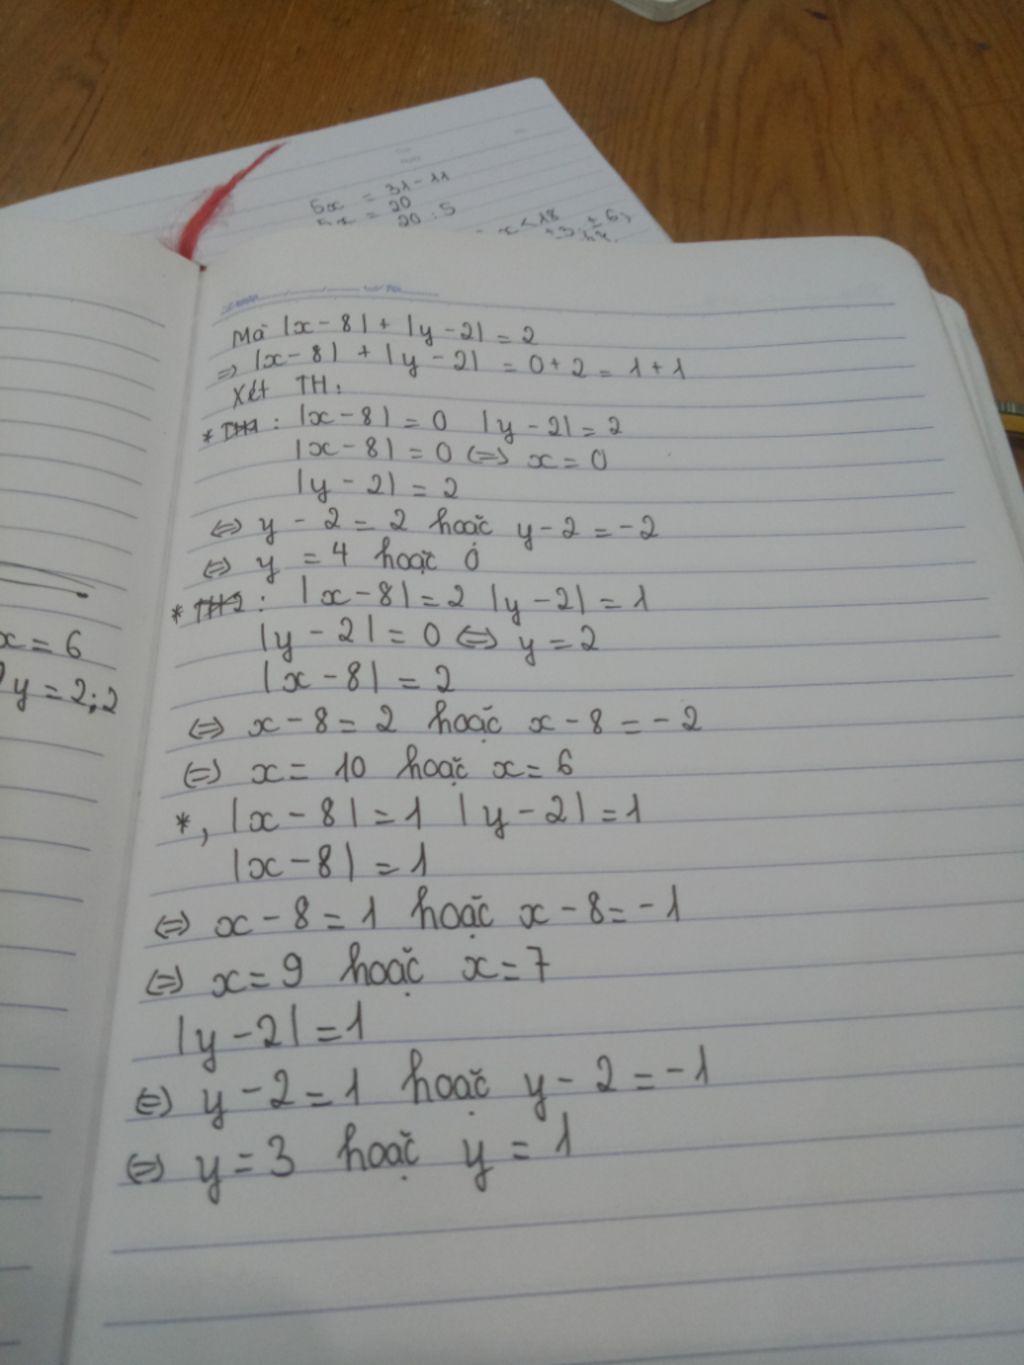 5x = 31 - 11
5x = 20
20 : 5
x < 18
Mà |x - 8| + |y - 2| = 2
=> |x - 8| + |y - 2| = 0 + 2 = 1 + 1
Xét TH:
* TH1 : |x - 8| = 0 |y - 2| = 2
|x - 8| = 0 <=> x = 0
|y - 2| = 2
<=> y - 2 = 2 hoặc y - 2 = -2
<=> y = 4 hoặc 0
* TH2 : |x - 8| = 2 |y - 2| = 1
|y - 2| = 0 <=> y = 2
|x - 8| = 2
<=> x - 8 = 2 hoặc x - 8 = -2
<=> x = 10 hoặc x = 6
*, |x - 8| = 1 |y - 2| = 1
|x - 8| = 1
<=> x - 8 = 1 hoặc x - 8 = -1
<=> x = 9 hoặc x = 7
|y - 2| = 1
<=> y - 2 = 1 hoặc y - 2 = -1
<=> y = 3 hoặc y = 1
x = 6
y = 2;2